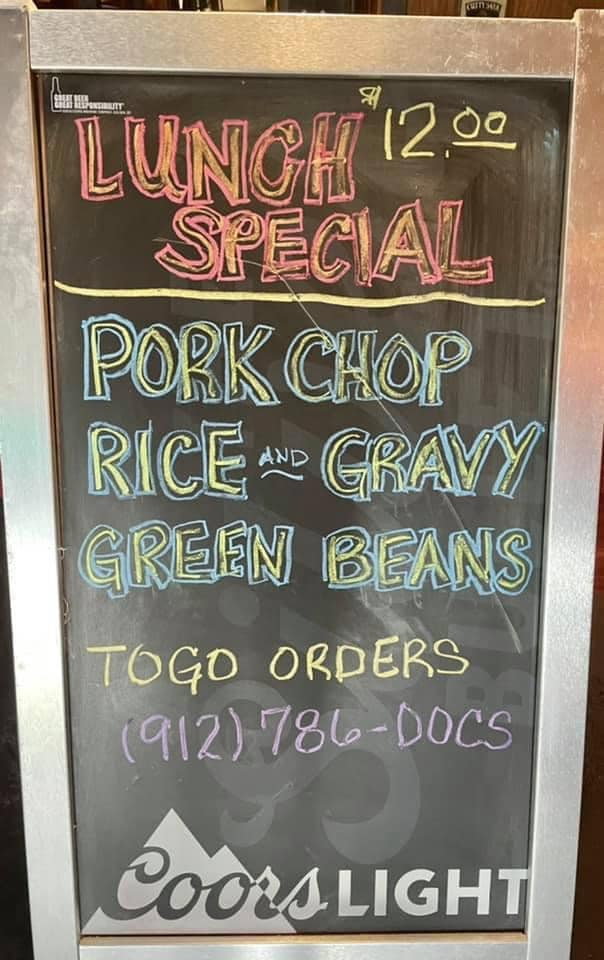 GREAT BEER
GREAT RESPONSIBILITY
LUNCH $12.00
SPECIAL
PORK CHOP
RICE AND GRAVY
GREEN BEANS
TOGO ORDERS
(912) 786-DOCS
Coors LIGHT